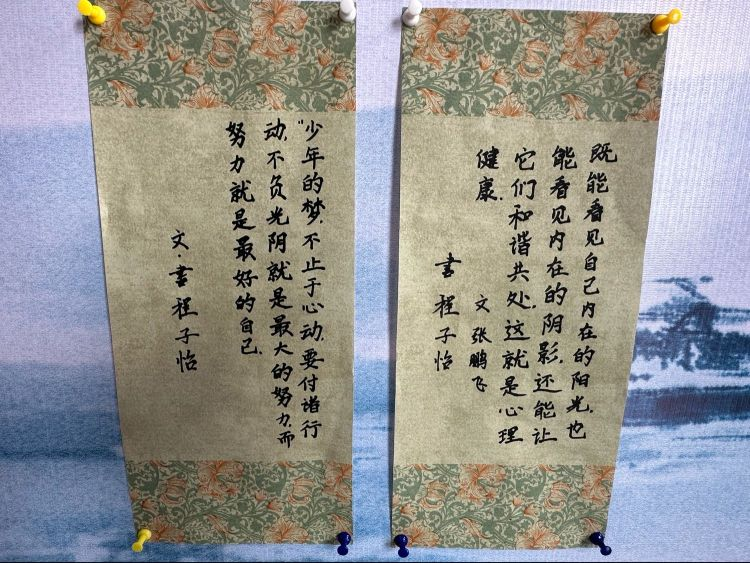 既能看见自己内在的阳光,也
能看见内在的阴影,还能让
它们和谐共处,这就是心理
健康.
文 张鹏飞
書 程子怡
"少年的梦,不止于心动,要付诸行
动,不负光阴就是最大的努力,而
努力就是最好的自己.
文·書程子怡